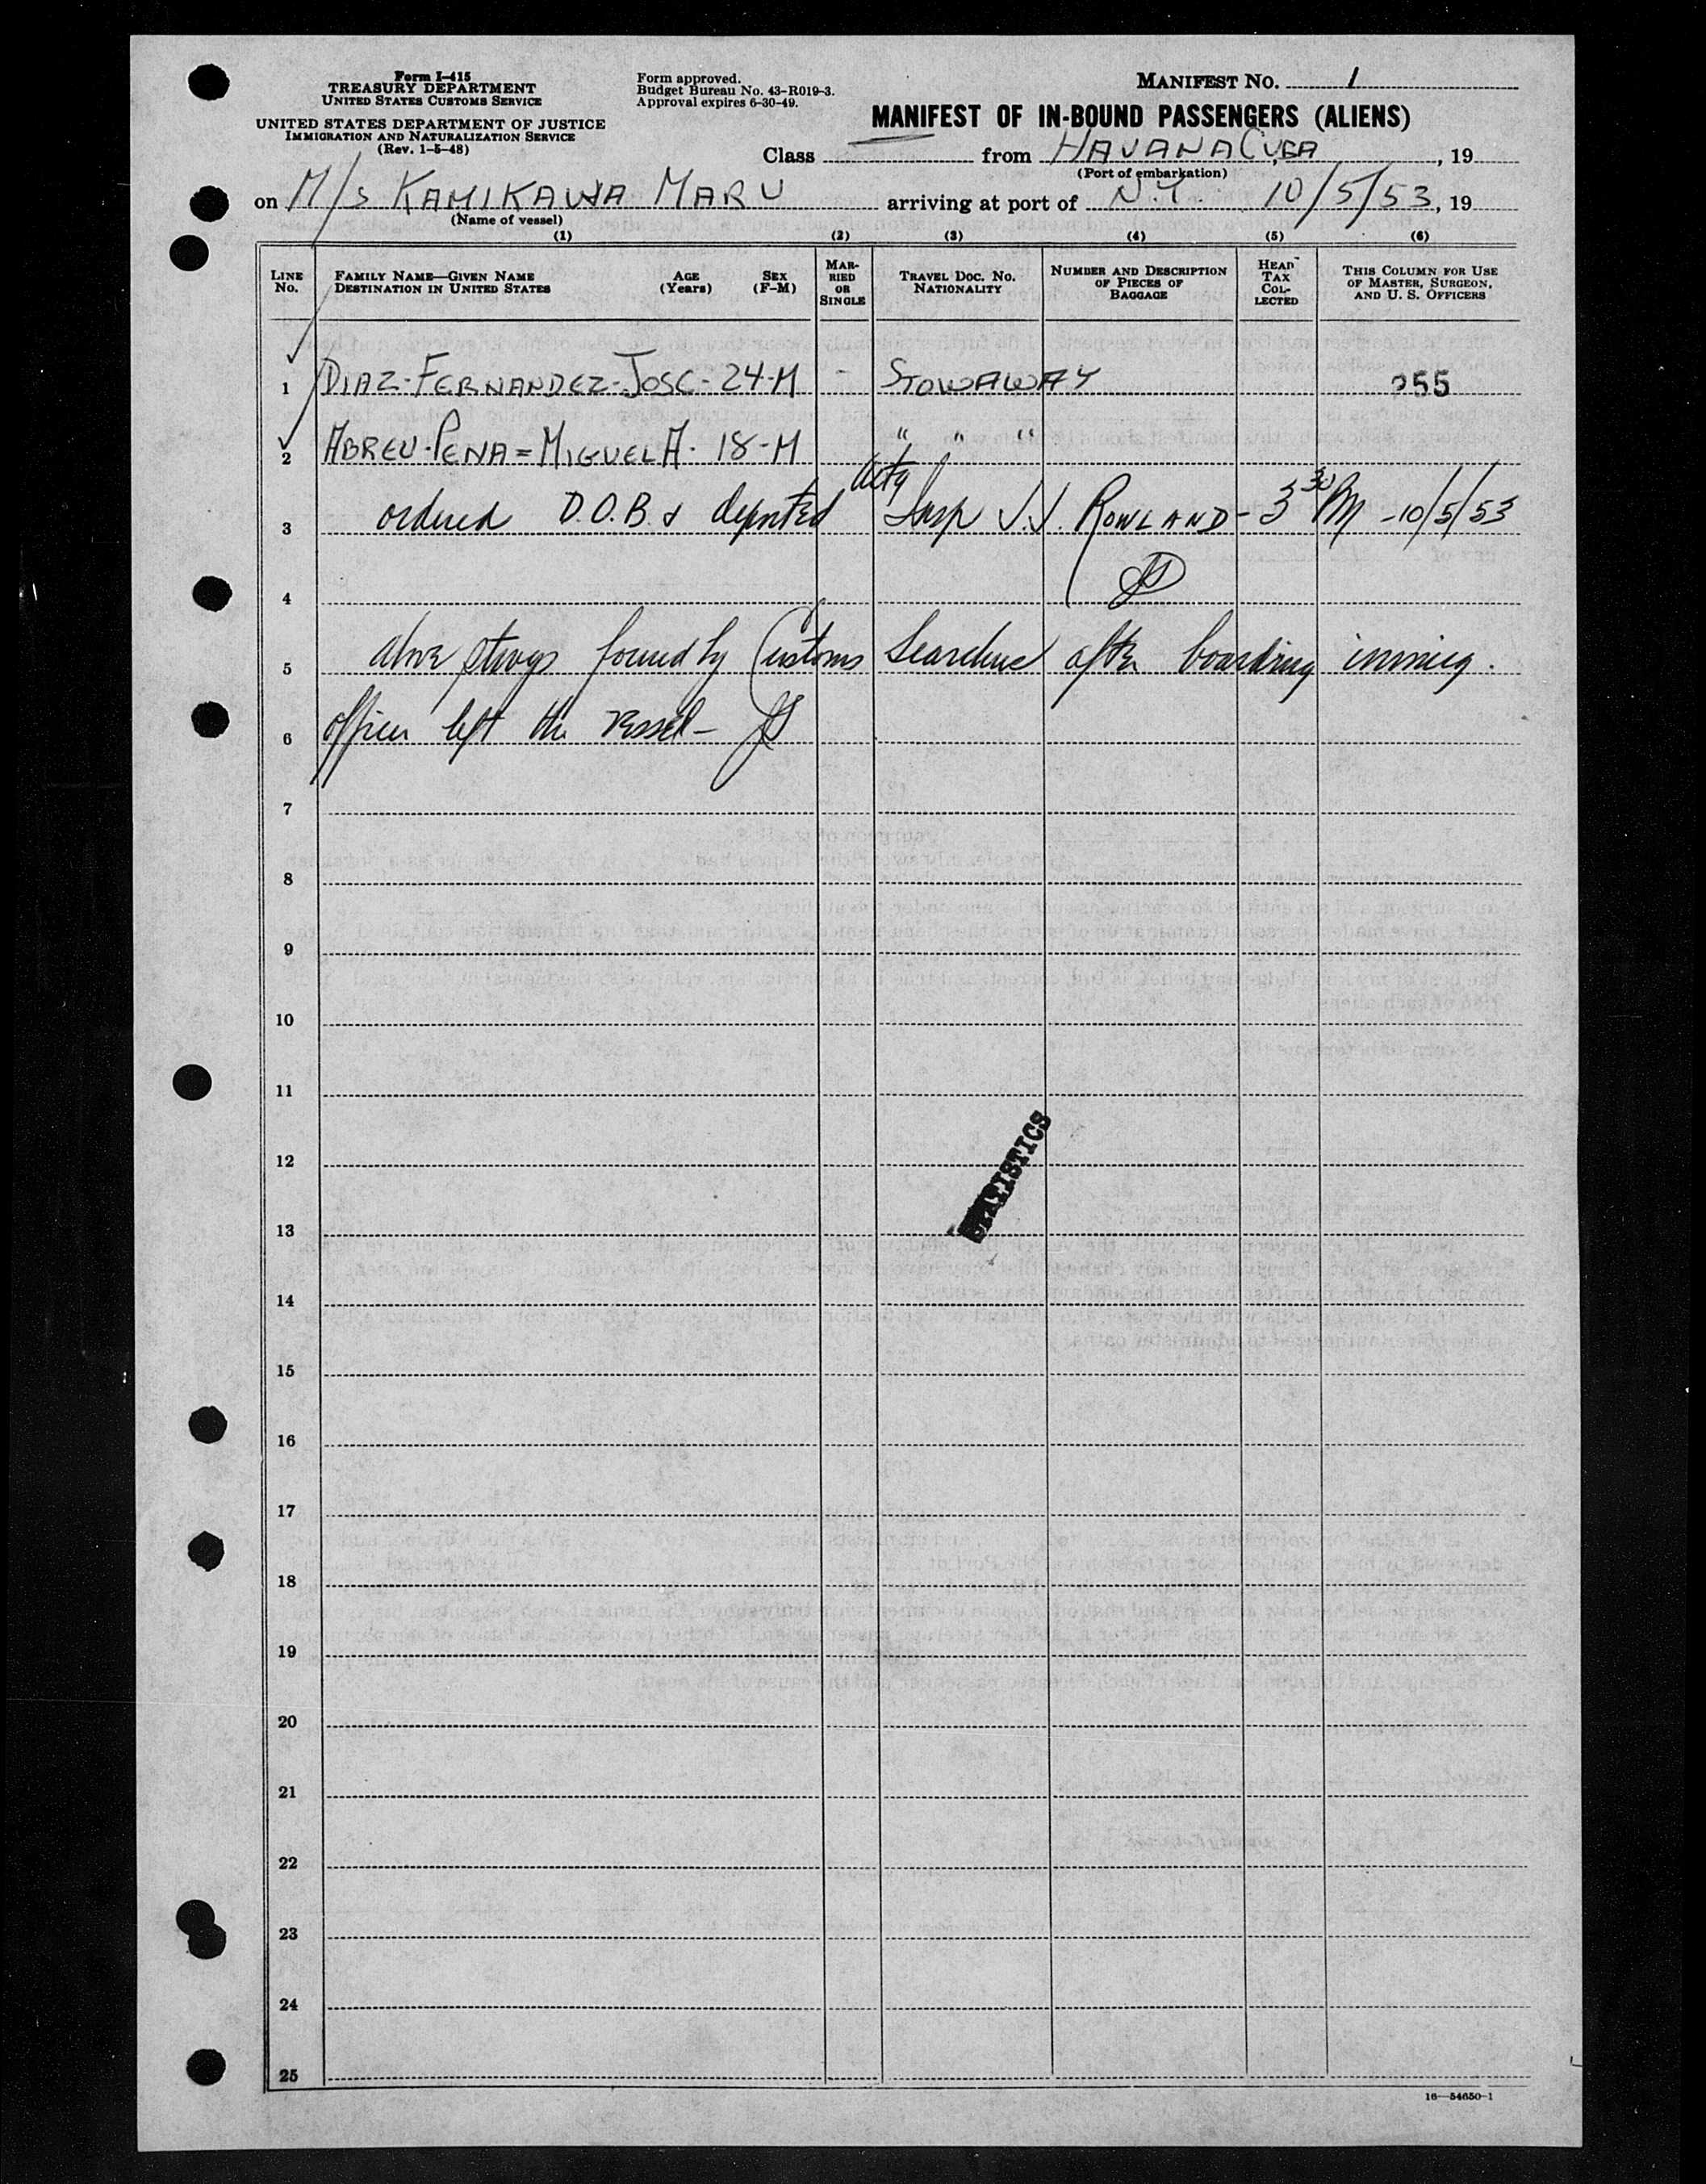 Form I-415
TREASURY DEPARTMENT
UNITED STATES CUSTOMS SERVICE
UNITED STATES DEPARTMENT OF JUSTICE
IMMIGRATION AND NATURALIZATION SERVICE
(Rev. 1-5-48)
Form approved.
Budget Bureau No. 43-R019-3.
Approval expires 6-30-49.
MANIFEST NO. 1
MANIFEST OF IN-BOUND PASSENGERS (ALIENS)
Class from HAVANA CUBA, 19
(Port of embarkation)
on M/S KAMIKAWA MARU arriving at port of N.Y. 10/5/53, 19
(Name of vessel)
(1) (2) (3) (4) (5) (6)
LINE No.
FAMILY NAME—GIVEN NAME
DESTINATION IN UNITED STATES
AGE (Years)
SEX (F-M)
MARRIED OR SINGLE
TRAVEL DOC. NO. NATIONALITY
NUMBER AND DESCRIPTION OF PIECES OF BAGGAGE
HEAD TAX COLLECTED
THIS COLUMN FOR USE OF MASTER, SURGEON, AND U. S. OFFICERS
✓ 1 DIAZ-FERNANDEZ-JOSE-24-M - STOWAWAY 255
✓ 2 ABREU-PENA=MIGUEL A-18-M " " "
3 ordered D.O.B. & deported Actg Insp J.J. ROWLAND-3 30 PM -10/5/53
4
5 above stwys found by Customs Searchers after boarding immig.
6 officer left the vessel-
7
8
9
10
11
12
STATISTICS
13
14
15
16
17
18
19
20
21
22
23
24
25
16—54650-1